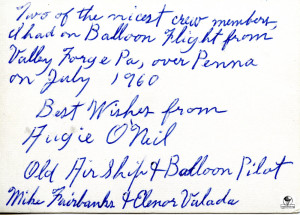 Two of the nicest crew members,
I had on Balloon Flight from
Valley Forge Pa, over Penna
on July 1960
Best Wishes from
Augie O'Neil
Old Air Ship & Balloon Pilot
Mike Fairbanks & Elenor Valada